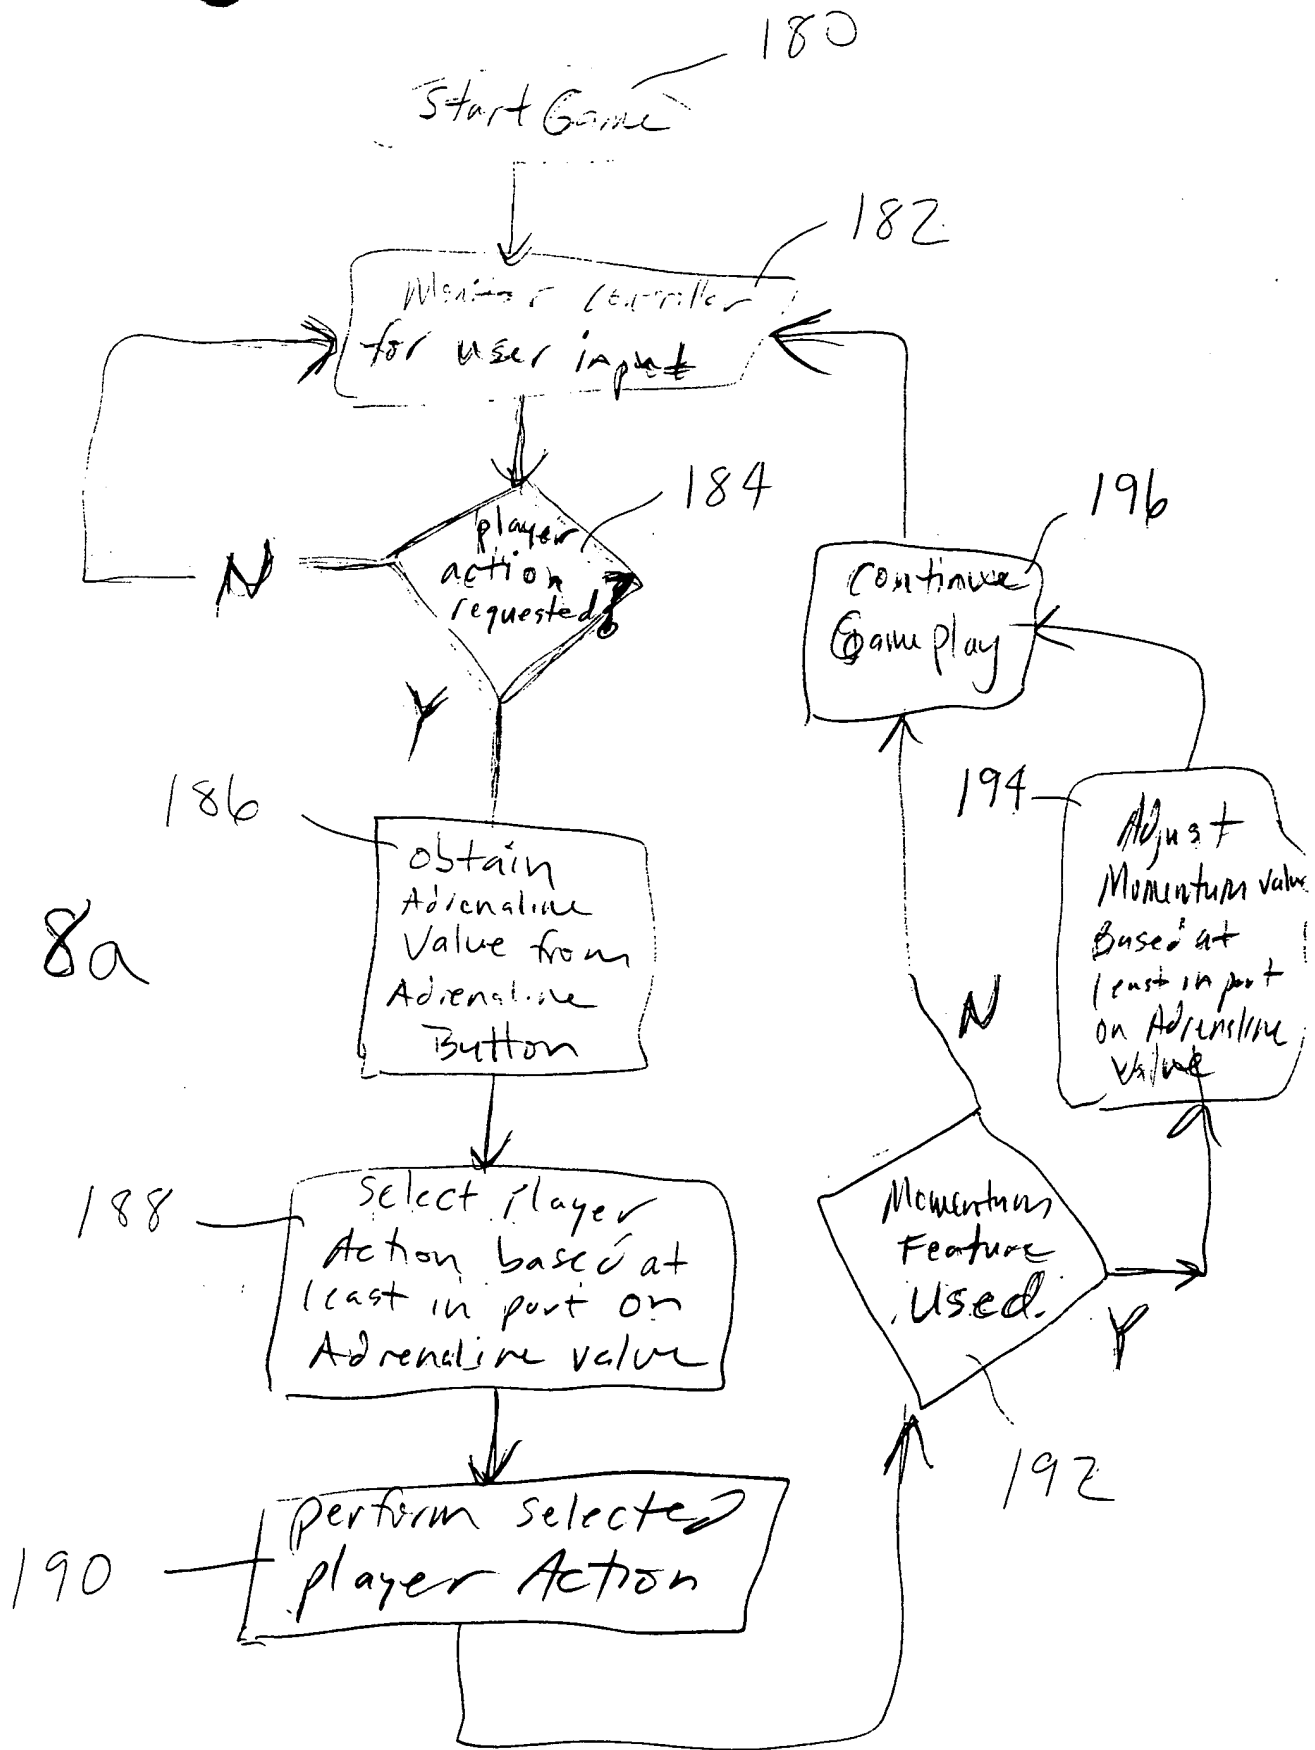 180
Start Game
182
Monitor Controller
for user input
184
player
action
requested?
N
Y
196
Continue
Game play
186
obtain
Adrenaline
Value from
Adrenaline
Button
194
Adjust
Momentum value
Based at
least in part
on Adrenaline
Value
8a
N
188
Select Player
Action based at
least in part on
Adrenaline value
Momentum
Feature
Used.
Y
192
190
perform selected
player Action